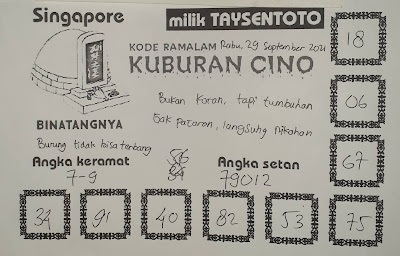 Singapore
milik TAYSENTOTO
KODE RAMALAN Rabu, 29 September 2021
KUBURAN CINO
18
Bukan Koran, tapi tumbuhan
06
Gak pacaran, langsung Nikahan
BINATANGNYA
Burung tidak bisa terbang
67
Angka keramat
Angka setan
7-9
79012
34 91 40 82 53 75